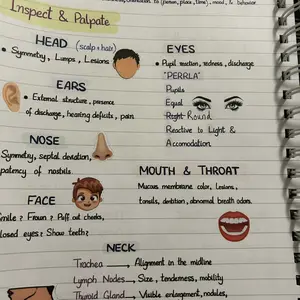 orientation to (person, place, time), mood & behavior
Inspect & Palpate
HEAD (scalp & hair)
• Symmetry, Lumps, Lesions
EARS
• External structure, presence
of discharge, hearing deficits, pain
NOSE
Symmetry, septal deviation,
patency of nostrils.
FACE
Smile? Frown? Puff out cheeks,
closed eyes? Show teeth?
EYES
• Pupil reaction, redness, discharge
"PERRLA"
Pupils
Equal
Right Round
Reactive to Light &
Accomodation
MOUTH & THROAT
Mucous membrane color, lesions,
tonsils, dentition, abnormal breath odors.
NECK
Trachea → Alignment in the midline
Lymph Nodes → Size, tenderness, mobility
Thyroid Gland → Visible enlargement, nodules,